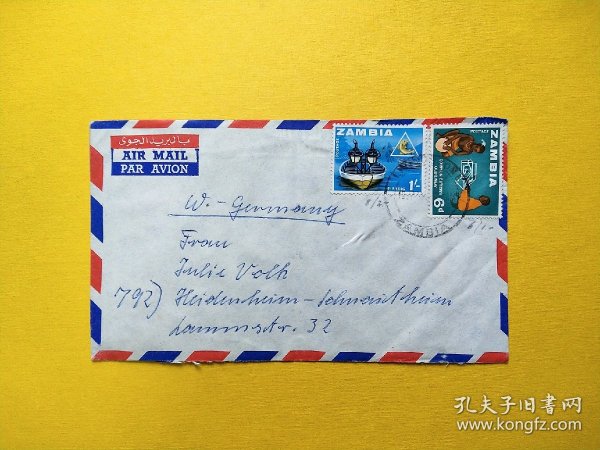 بالبريد الجوى
AIR MAIL
PAR AVION
ZAMBIA
POSTAGE
1/-
ZAMBIA
POSTAGE
6d
ZAMBIA
W.-Germany
Frau
Julie Volk
792) Heidenheim-Schnaitheim
Lammstr. 32
孔夫子旧书网
www.kongfz.com